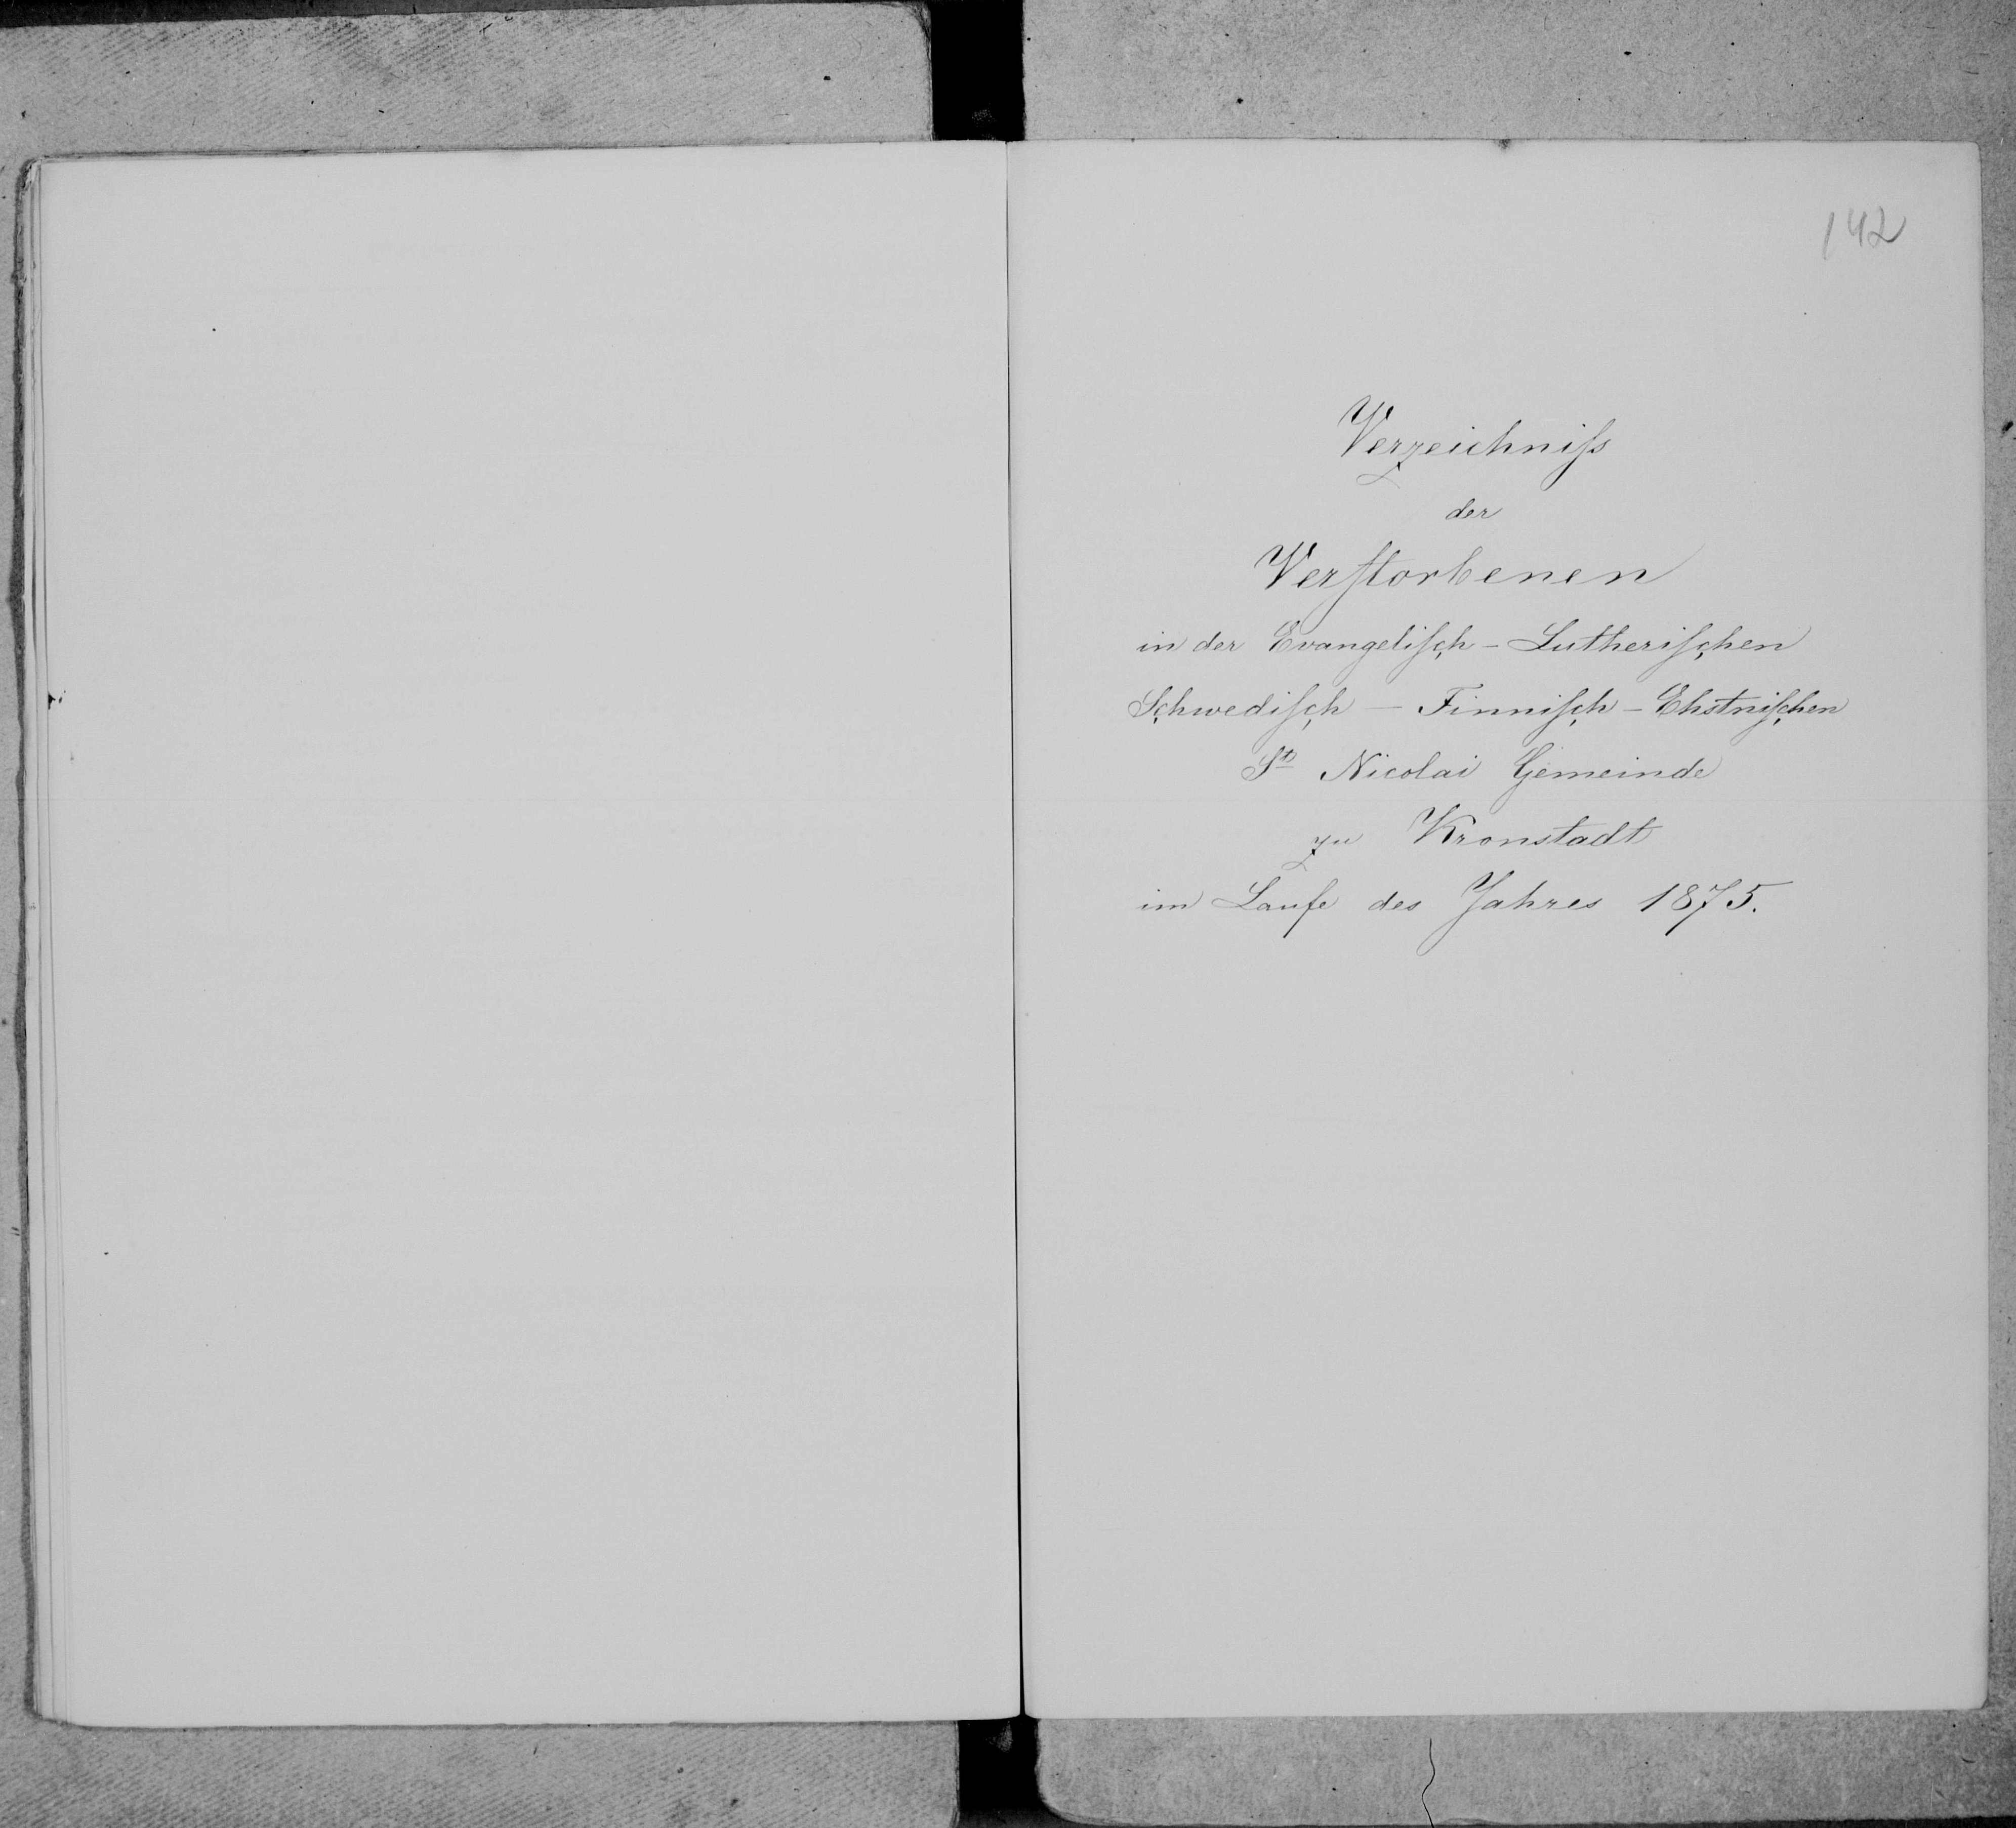 142
Verzeichniſs
der
Verſtorbenen
in der Evangeliſch - Lutheriſchen
Schwediſch - Finniſch - Ehstniſchen
St Nicolai Gemeinde
zu Kronstadt
im Laufe des Jahres 1875.